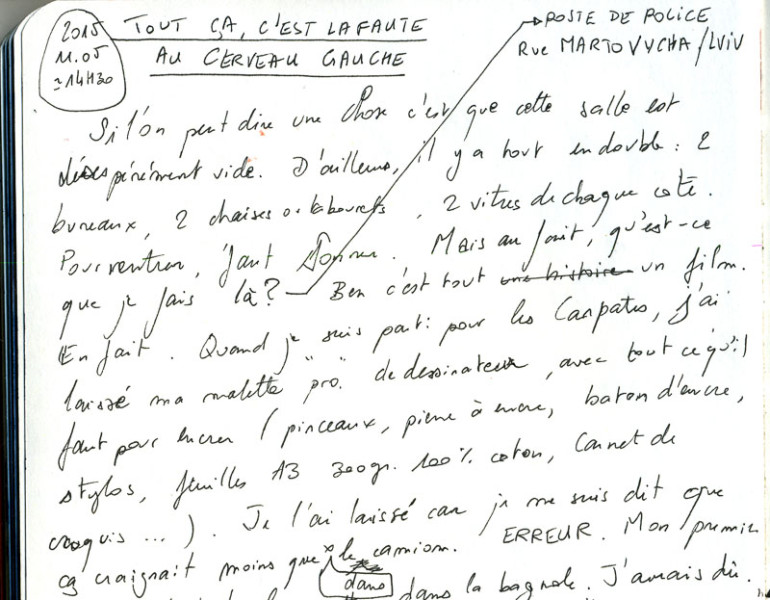 2015
11.05
≃14H30
TOUT ÇA, C'EST LA FAUTE
AU CERVEAU GAUCHE
POSTE DE POLICE
Rue MARTOVYCHA/LVIV
Si l'on peut dire une chose c'est que cette salle est
désespérément vide. D'ailleurs, il y a tout en double : 2
bureaux, 2 chaises ou tabourets, 2 vitres de chaque coté.
Pour rentrer, faut sonner. Mais au fait, qu'est-ce
que je fais là? Ben c'est tout une histoire un film.
En fait. Quand je suis parti pour les Carpates, j'ai
laissé ma malette "pro." de dessinateur, avec tout ce qu'il
faut pour encrer (pinceaux, pierre à encre, baton d'encre,
stylos, feuilles A3 300gr. 100% coton, Carnet de
croquis ...). Je l'ai laissé car je me suis dit que
ça craignait moins que le camion. ERREUR. Mon premier
dans dans la bagnole. J'aurais dû.